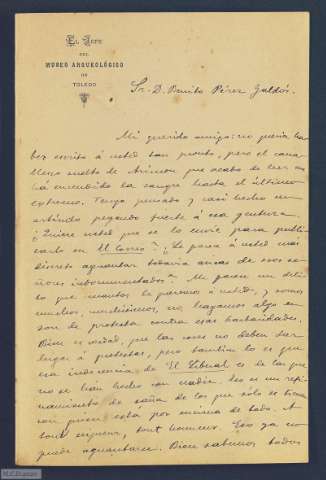 EL JEFE
DEL
MUSEO ARQUEOLÓGICO
DE
TOLEDO
Sr. D. Benito Pérez Galdós.
Mi querido amigo: no quería ha
ber escrito á usted tan pronto, pero el cana
llesco suelto de que acabo de leer me
há encendido la sangre hasta el último
extremo. Tengo pensado y casi hecho un
artículo pegando fuerte á esa gentuza
¿Quiere usted que se lo envíe para publi
carlo en El Correo? ¿Le parece á usted más
discreto aguantar todavía ansias de esos se
ñores Me parece un deli
to que cuantos le queremos á usted, y somos
muchos, muchísimos, no hagamos algo en
son de protesta contra esas barbaridades.
Bien es verdad, que las cosas no deben dar
lugar á protestas, pero también lo es que
esa indecencia de El Liberal es de las que
no se han hecho con nadie. Eso es un refi
namiento de saña de los que sólo se
con quien está por encima de todo. A
tout seigneur, tout honneur. Eso ya no
puede aguantarse. Bien sabemos todos